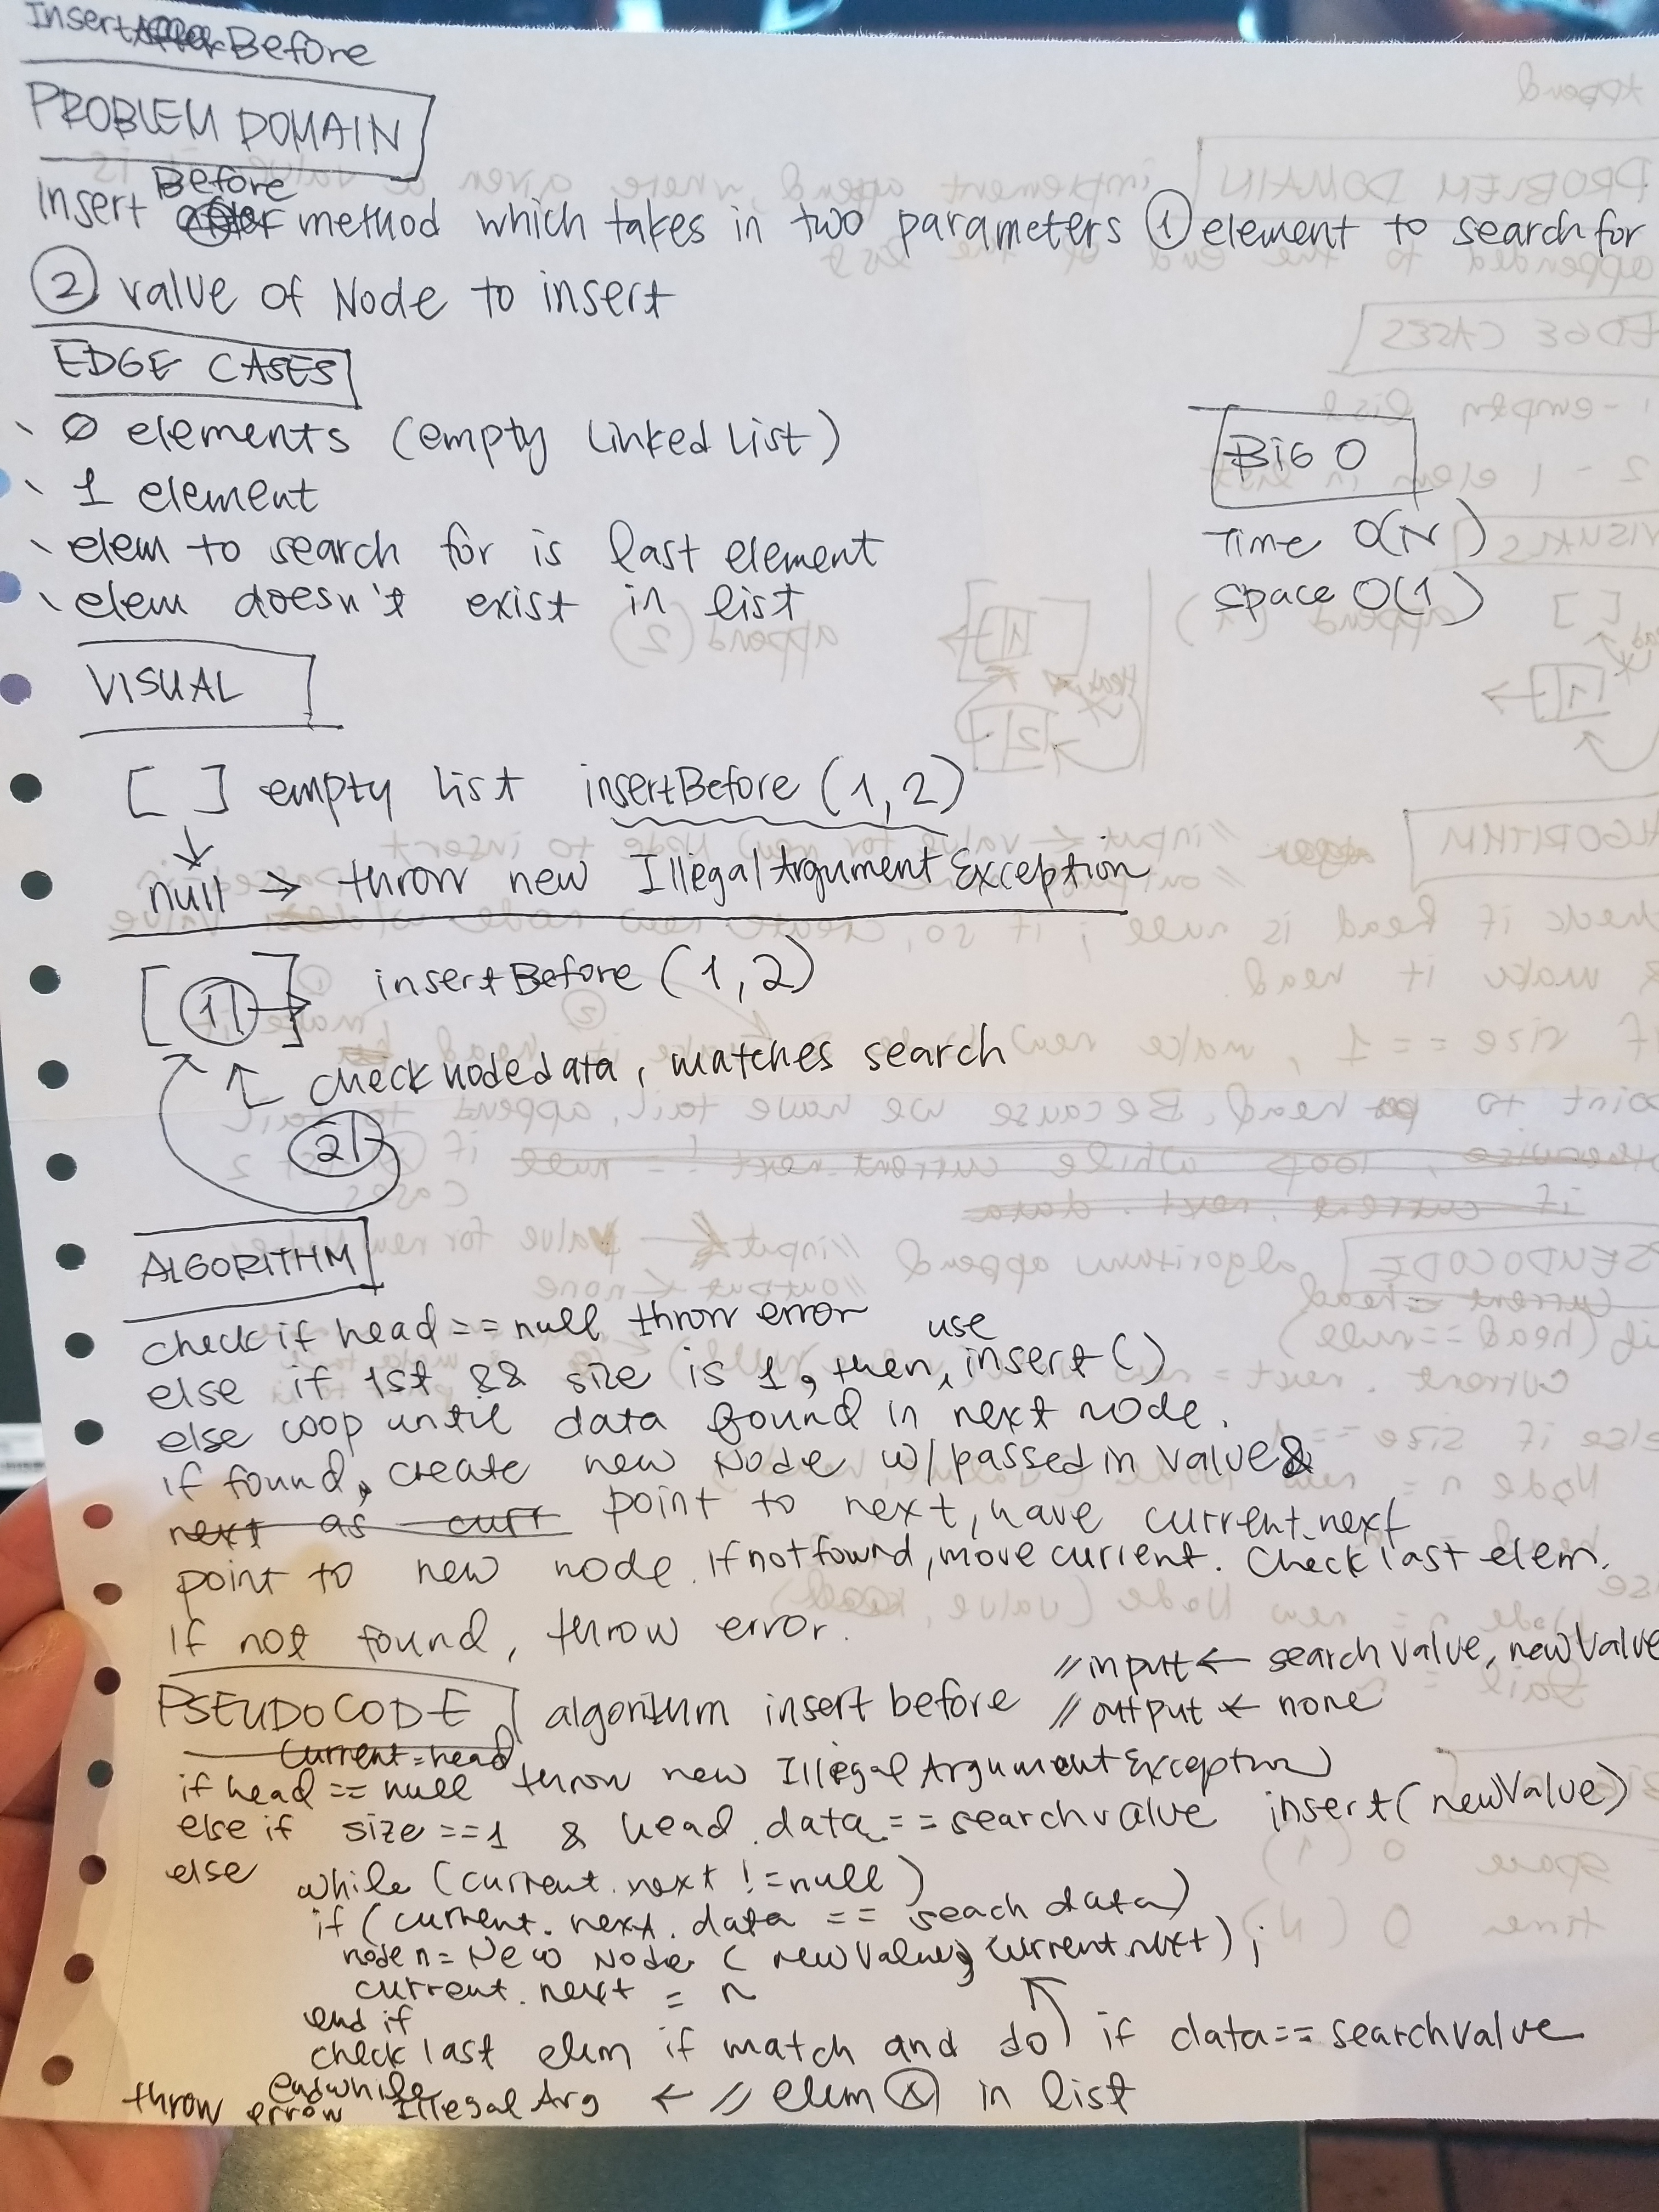 Insert Before
PROBLEM DOMAIN
Insert Before method which takes in two parameters ① element to search for
② value of Node to insert
EDGE CASES
\ 0 elements (empty Linked List)
\ 1 element
\ elem to search for is last element
\ elem doesn't exist in list
BIG O
Time O(N)
space O(1)
VISUAL
[ ] empty list insertBefore (1,2)
↓
null → throw new IllegalArgumentException
[ 1 → ] insertBefore (1,2)
check node data, matches search
2
ALGORITHM
check if head == null throw error
else if 1st && size is 1, then use insert()
else loop until data found in next node.
if found, create new Node w/ passed in value &
next as curr point to next, have current.next
point to new node. if not found, move current. Check last elem.
If not found, throw error.
// input ← search value, newValue
PSEUDOCODE algorithm insert before // output ← none
current = head
if head == null throw new IllegalArgumentException
else if size ==1 & head.data == searchvalue insert(newValue)
else
while (current.next != null)
if (current.next.data == seach data)
node n = New Node (newValue, current.next);
current.next = n
end if
check last elem if match and do ↑ if data == searchvalue
endwhile
throw error Illegal Arg ← // elem ⓧ in list